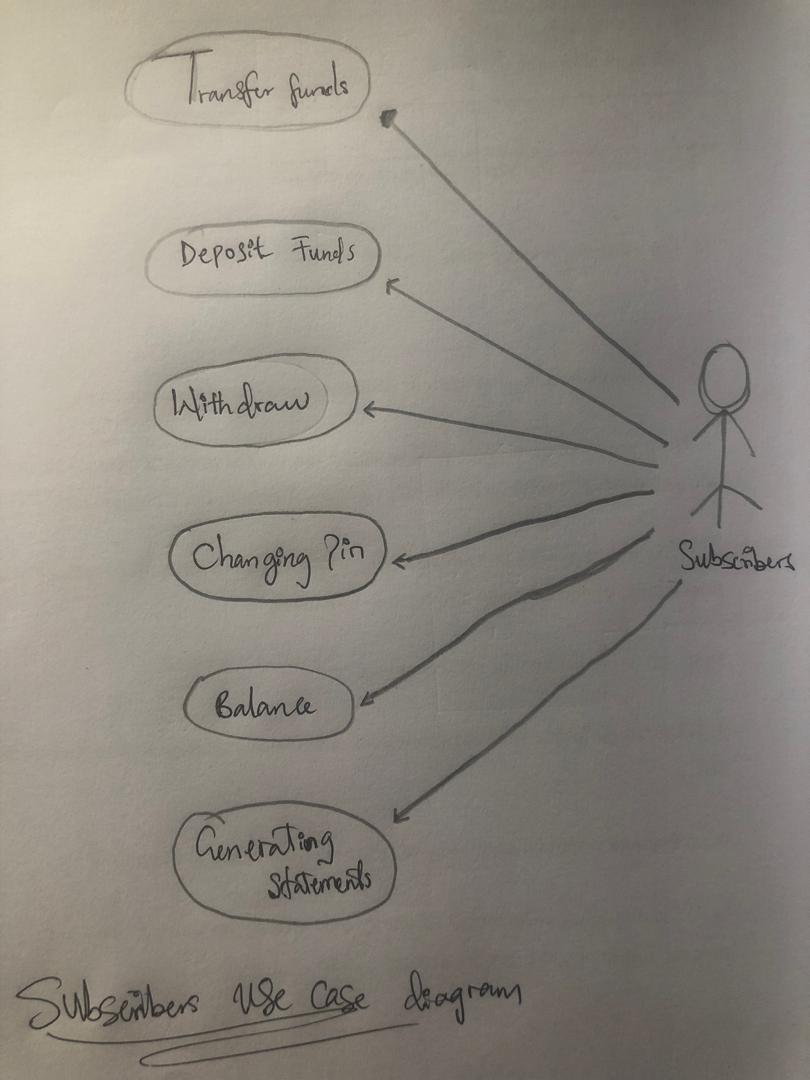 Transfer funds
Deposit Funds
Withdraw
Changing Pin
Balance
Generating
Statements
Subscribers
Subscribers Use Case diagram